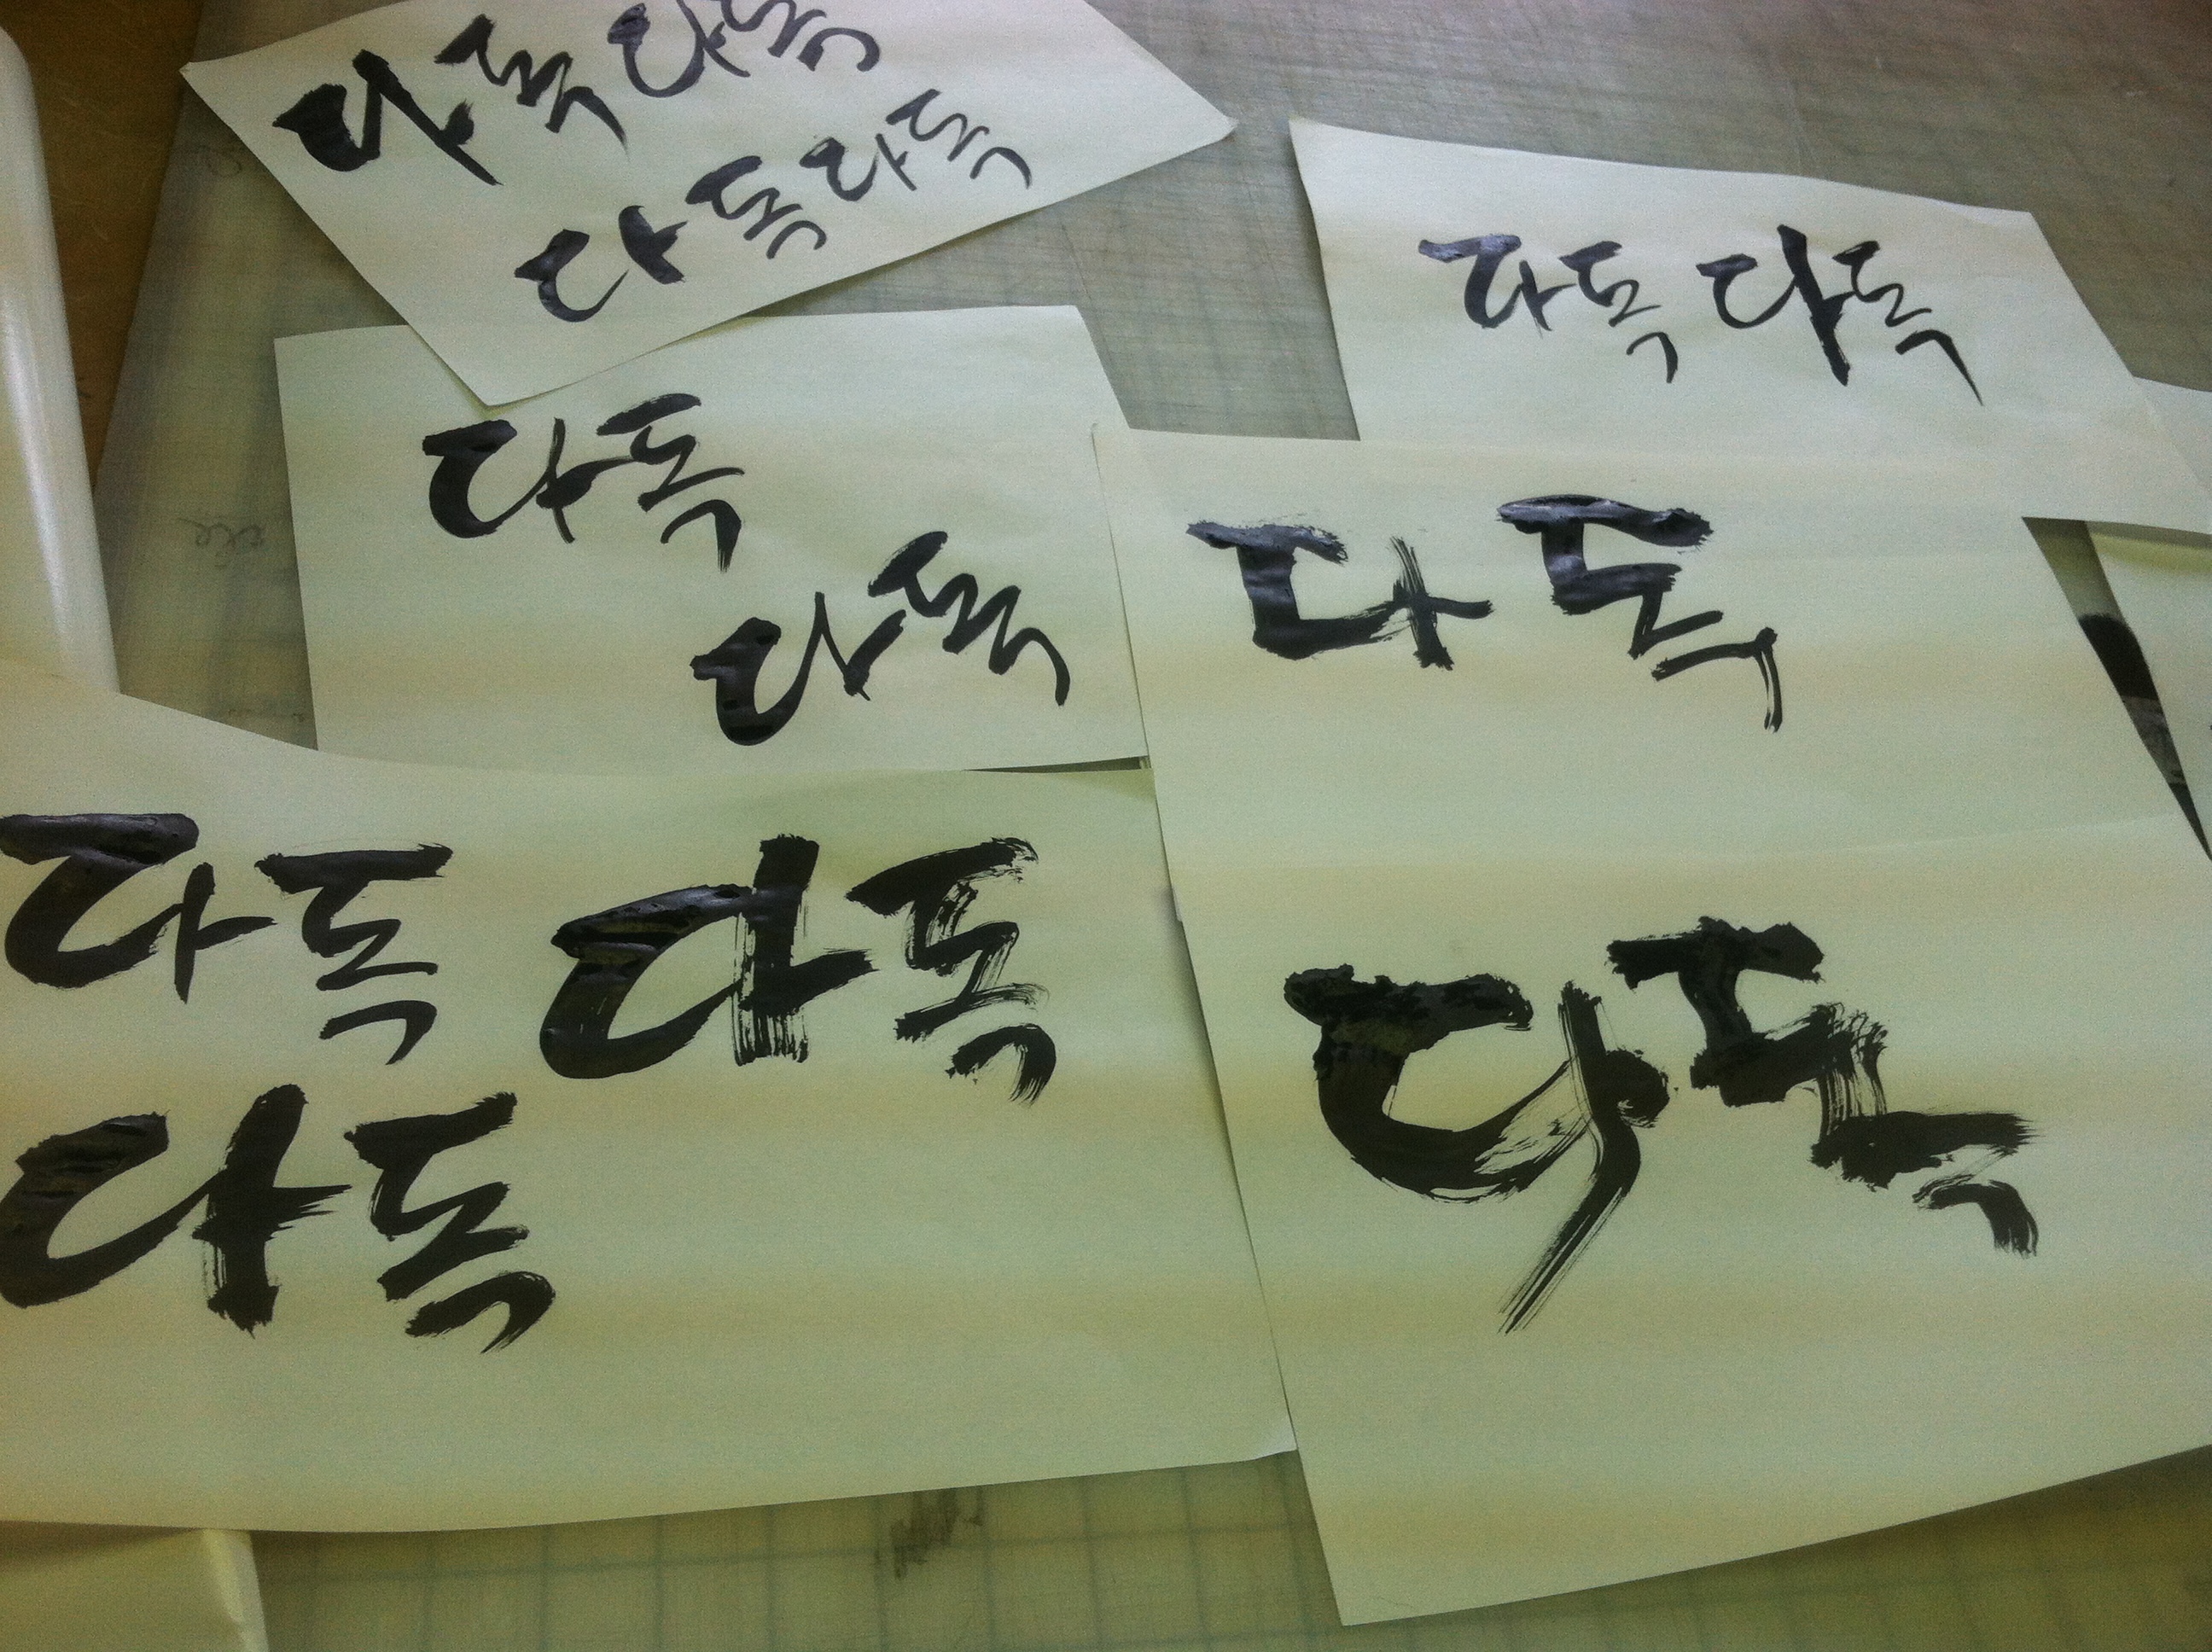 다독다독
다독다독
다독다독
다독
다독
다독
다독
다독다독
다독